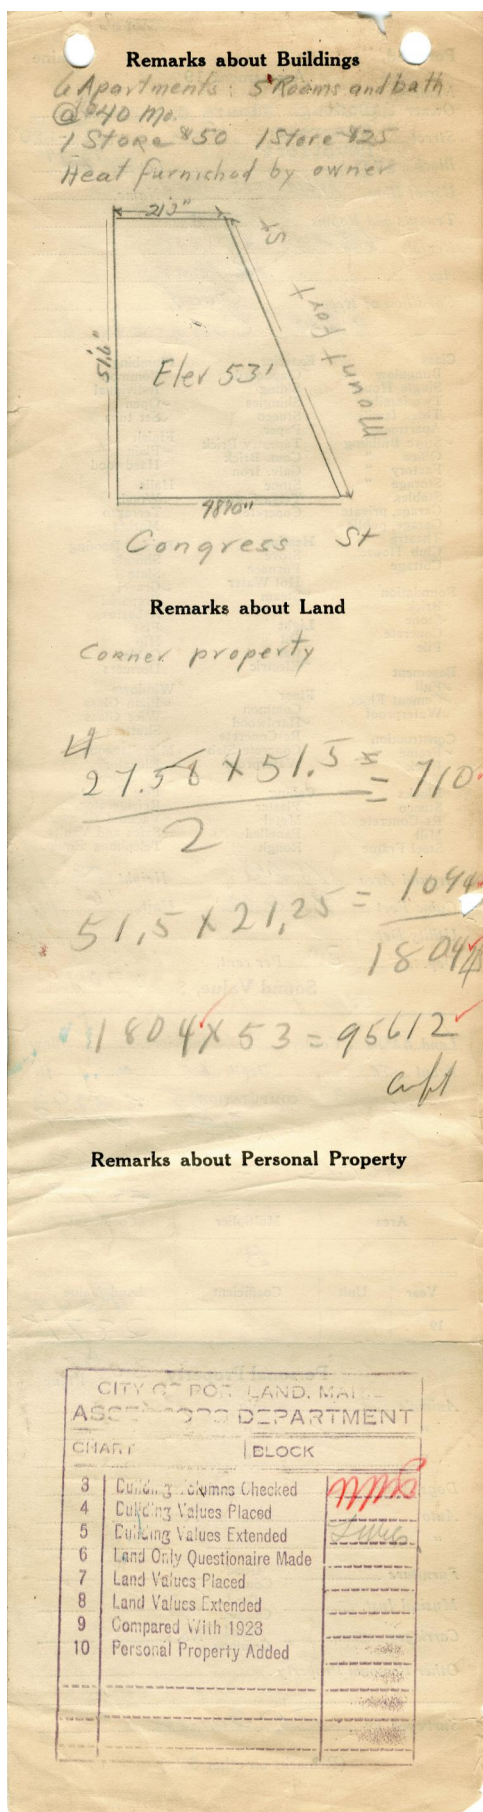 Remarks about Buildings
6 Apartments: 5 Rooms and bath
@ $40 mo.
1 Store $50 1 Store $25
Heat furnished by owner
21'3"
St
Mount fort
51'6"
Elev 53'
48'10"
Congress St
Remarks about Land
Corner property
27.58 X 51.5 = 710
2
51.5 X 21.25 = 1094
1804
1804 X 53 = 95612
cu ft
Remarks about Personal Property
CITY OF PORTLAND, MAINE
ASSESSORS DEPARTMENT
CHART BLOCK
3 Building Columns Checked
4 Building Values Placed
5 Building Values Extended
6 Land Only Questionaire Made
7 Land Values Placed
8 Land Values Extended
9 Compared With 1923
10 Personal Property Added